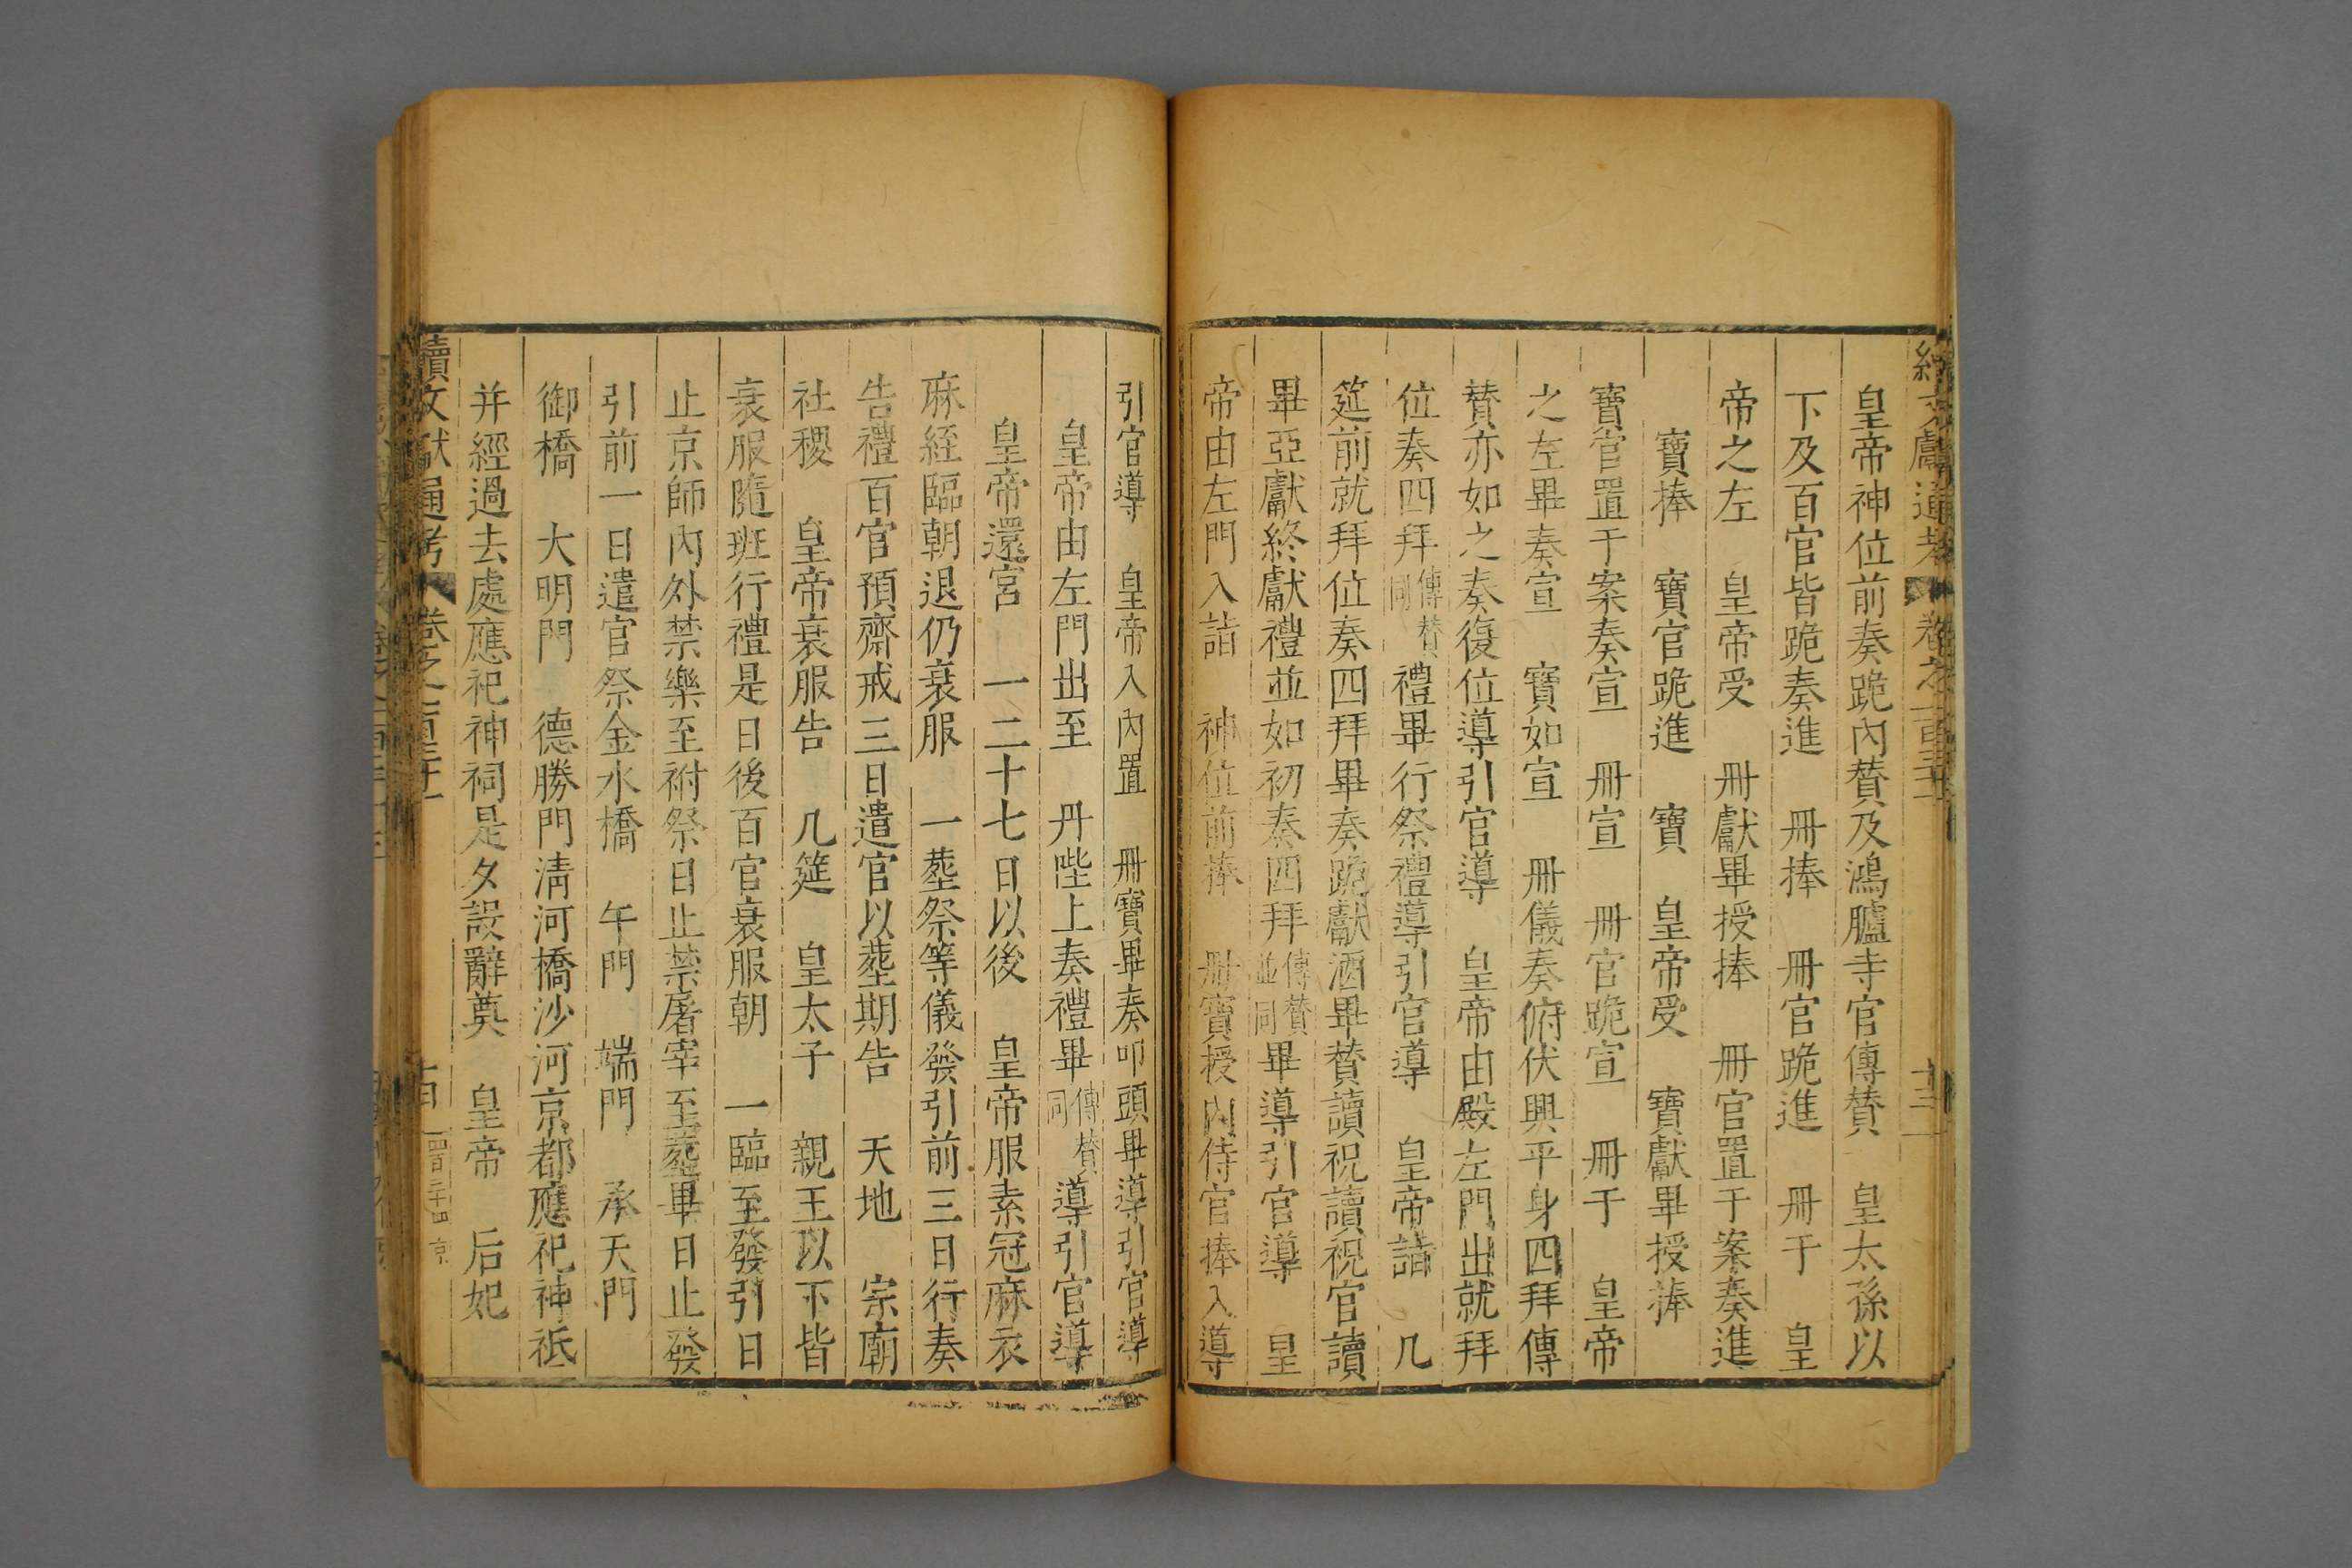 皇帝神位前奏跪內贊及鴻臚寺官傳贊 皇太孫以
下及百官皆跪奏進 冊捧 冊官跪進 冊于 皇
帝之左 皇帝受 冊獻畢授捧 冊官置于案奏進
寶捧 寶官跪進 寶 皇帝受 寶獻畢授捧
寶官置于案奏宣 冊宣 冊官跪宣 冊于 皇帝
之左畢奏宣 寶如宣 冊儀奏俯伏興平身四拜傳
贊亦如之奏復位導引官導 皇帝由殿左門出就拜
位奏四拜傳贊同禮畢行祭禮導引官導 皇帝詣 几
筵前就拜位奏四拜畢奏跪獻酒畢贊讀祝讀祝官讀
畢亞獻終獻禮並如初奏四拜傳贊並同畢導引官導 皇
帝由左門入詣 神位前捧 冊寶授內侍官捧入導
引官導 皇帝入內置 冊寶畢奏叩頭畢導引官導
皇帝由左門出至 丹陛上奏禮畢傳贊同導引官導
皇帝還宮 一二十七日以後 皇帝服素冠麻衣
麻絰臨朝退仍衰服 一塟祭等儀發引前三日行奏
告禮百官預齋戒三日遣官以塟期告 天地 宗廟
社稷 皇帝衰服告 几筵 皇太子 親王以下皆
衰服隨班行禮是日後百官衰服朝 一臨至發引日
止京師內外禁樂至祔祭日止禁屠宰至塟畢日止發
引前一日遣官祭金水橋 午門 端門 承天門
御橋 大明門 德勝門清河橋沙河京都應祀神祇
并經過去處應祀神祠是夕設辭奠 皇帝 后妃
續文獻通考 卷之一百三十 古 四百二十四 京